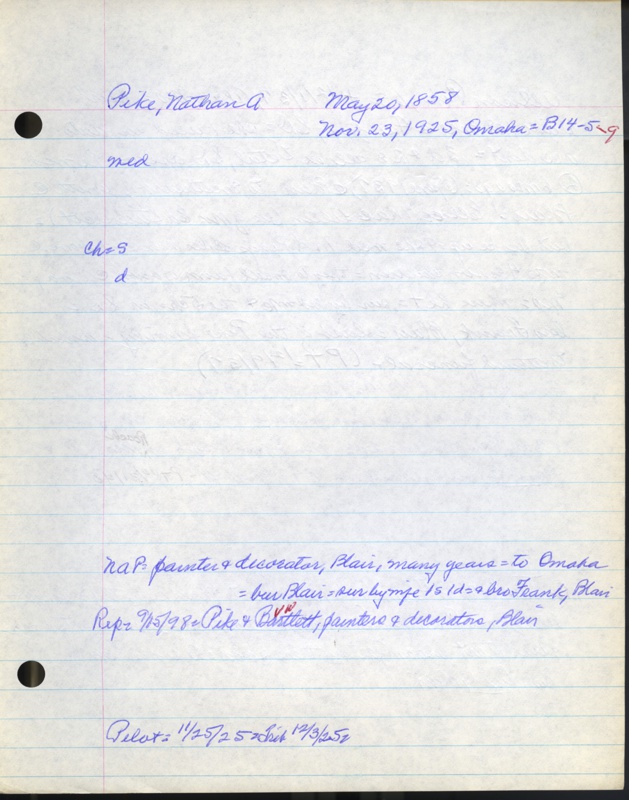 Pike, Nathan A May 20, 1858
Nov. 23, 1925, Omaha = B14-5-9
med
Ch = S
d
NaP = painter & decorator, Blair, many years = to Omaha
= bur Blair = sur by wife 1s 1d = & bro Frank, Blair
Rep = 9/15/98 = Pike & Bartlett, painters & decorators, Blair
Pilot = 11/25/25 = Trib 12/3/25